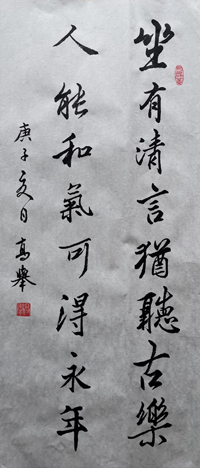 坐有清言猶聽古樂
人能和氣可得永年
庚子夏日高舉